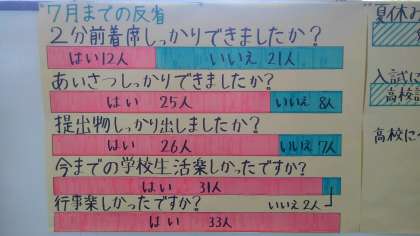 7月までの反省
2分前着席しっかりできましたか?
はい12人 いいえ 21人
あいさつしっかりできましたか?
はい 25人 いいえ 8人
提出物しっかり出しましたか?
はい 26人 いいえ 7人
今までの学校生活楽しかったですか?
はい 31人
行事楽しかったですか? いいえ 2人
はい 33人
夏休み
入試に
高校
高校に